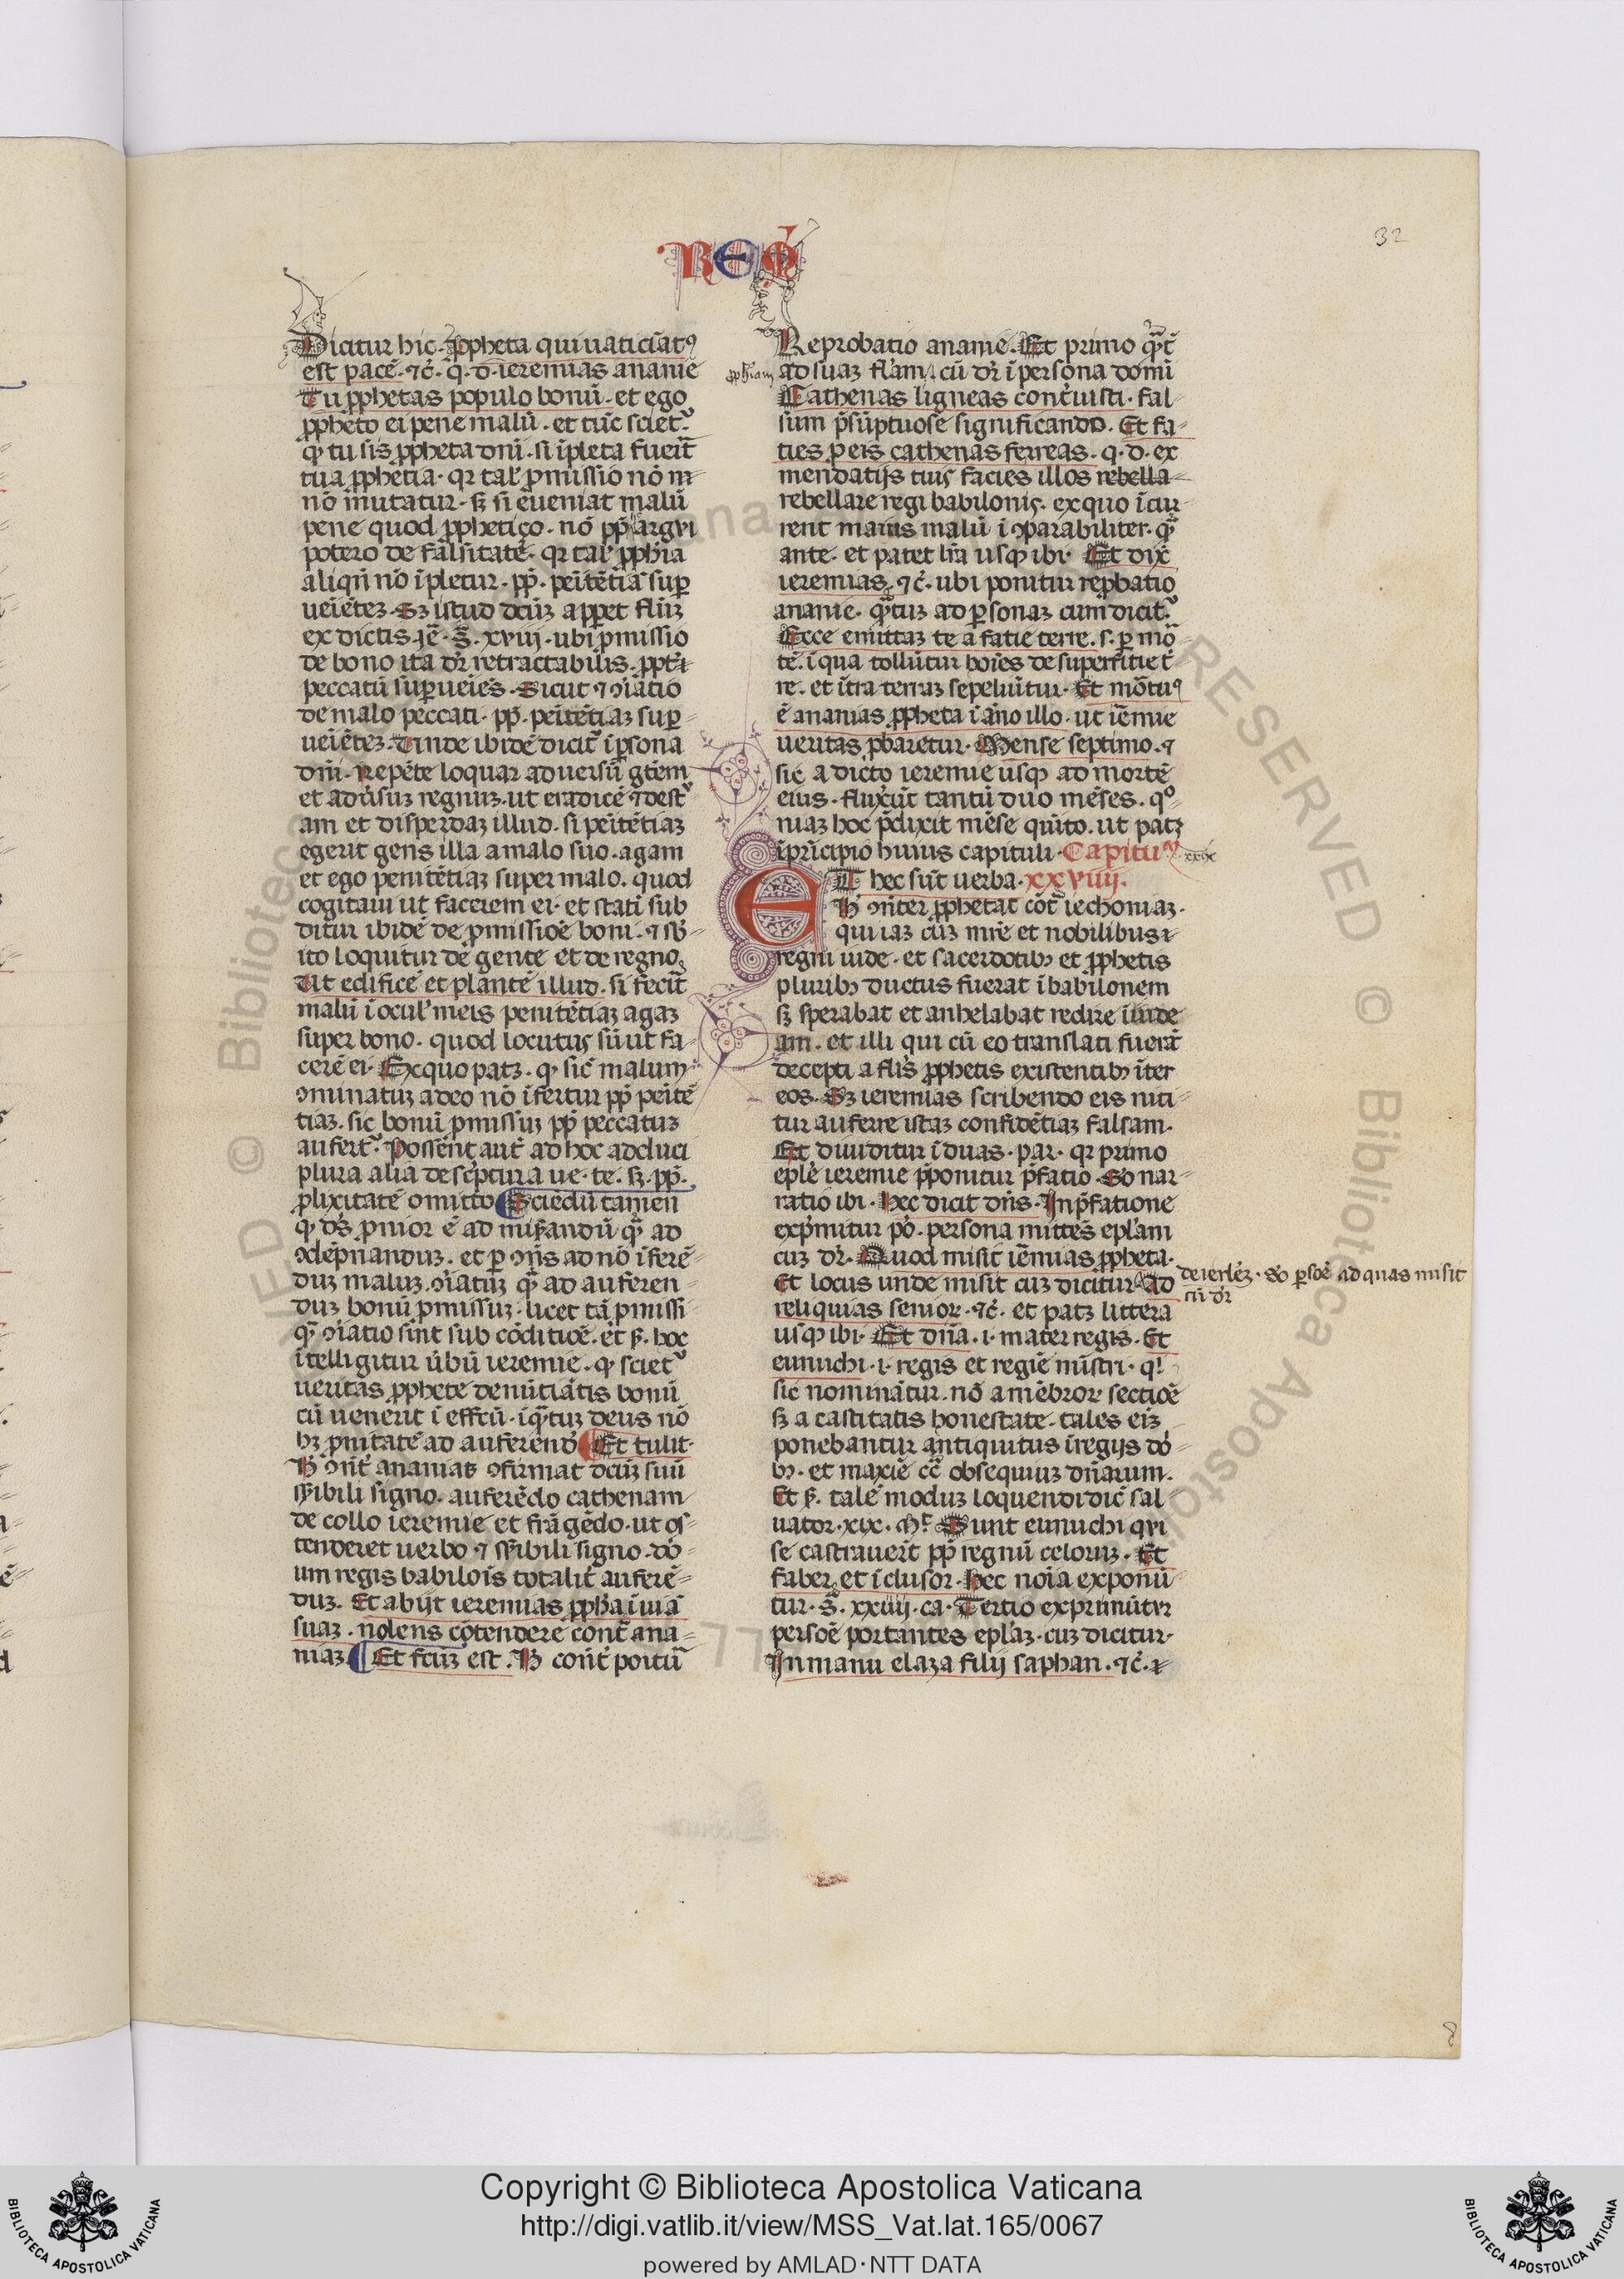 REG
32
Dicitur hic ꝓpheta qui uaticiat᷒
est pacē. ⁊c̄. q. d. ieremias ananie
Tu ꝓphetas populo bonū. et ego
ꝓpheto ei pene malū. et tūc sciet᷑
ꝙ tu sis ꝓpheta dn̄i. si īpleta fueīt
tua ꝓphetia. qr tal̄ ꝓmissio nō m
nō īmutatur. sꝫ si eueniat malū
pene quod ꝓphetiço. nō ꝓp̄ argui
potero de falsitate. qr tal̄ ꝓph̄ia
aliqn̄ nō īpletur. ꝓp̄. pēitētiā suꝑ
ueīētez. Sꝫ istud dc̄ūz appet fl̄uz
ex dictis ie. s̄. xviij. ubi ꝓmissio
de bono ita dr̄ retractabilis. ꝓpt̄
peccatū suꝑueīēs. Sicut ⁊ ꝯiatio
de malo peccati. ꝓp̄. pēitētiaz suꝑ
ueīētez. Vnde ibidē dicit᷑ ī ꝑsona
dn̄i. Repēte loquar aduersū gētem
et adūsuz regnuz. ut eradicē ⁊ dest᷑
am et disperdaz illud. si pēitētiaz
egerit gens illa a malo suo. agam
et ego penitētiaz super malo. quod
cogitaui ut facerem ei. et statī sub
ditur ibidē de ꝓmissiōe boni. ⁊ sb̄
ito loquitur de gente et de regno
Ut edificē et plantē illud. si fecīt
malū ī ocul̄ meis penitētiaz agaz
super bono. quod locutus sū ut fa
cerē ei. Ex quo patꝫ. ꝙ sic̄ malum
ꝯminatuz a deo nō īfertur ꝓp̄ pēitē
tiaz. sic bonū ꝓmissuz ꝓp̄ peccatuz
aufert᷑. Possent aut̄ ad hoc adduci
plura alia de sc̄ptura ue. te. sꝫ. ꝓp̄.
ꝓlixitatē omitto Sciēdū tamen
ꝙ ds̄ ꝓnior ē ad misr̄andū qᷓ ad
ꝯdēpnanduz. et ꝑ ꝯn̄s ad nō īferē
duz maluz. ꝯiatuz qᷓ ad auferen
duz bonū ꝓmissuz. licet tā ꝓmissi
qᷓ ꝯiatio sint sub cōditiōe. et s̄. hoc
ītelligitur ūbū ieremie. ꝙ sciet᷑
ueritas ꝓphete denūtiātis bonū
cū uenerit ī effectū. īqᷓtuz deus nō
hꝫ ꝓnitatē ad auferend̄ Et tulit.
H̄ ꝯn̄t ananias ꝯfirmat dc̄ūz suū
sēsibili signo. auferēdo cathenam
de collo ieremie et frāgēdo. ut os
tenderet uerbo ⁊ sēsibili signo. do
um regis babilois totalit̄ auferē
duz. Et abijt ieremias ꝓph̄a ī uiā
suaz. nolens cōtendere cont̄ ana
niaz. Et fc̄ūz est. H̄ cont̄ poitū
Reprobatio ananie. Et primo qᷓt̄
ad suaz fl̄am cū dr̄ ī persona domī
ꝓph̄iam
Cathenas ligneas cont̄uisti. fal
sum p̄sūptuose significando. Et fa
cies ꝑ eis cathenas ferreas. q. d. ex
mendatijs tuis facies illos rebella
rebellare regi babilonis. ex quo īcur
rent maius malū ī ꝯparabiliter. qᷓ
ante. et patet lr̄a usqꝫ ibi. Et dix̄
ieremias. ⁊c̄. ubi ponitur reꝓbatio
ananie. qᷓtuz ad ꝑsonaz cum dicit᷑
Ecce emittaz te a facie terre. s. ꝑ mo
tē. ī qua tollūtur hoīes de superficie t̄
re. et ītra terraz sepeluītur. Et mōtu᷒
ē ananias ꝓpheta ī āno illo. ut iēmie
ueritas ꝓbaretur. Mense septimo. ⁊
sic a dicto ieremie usqꝫ ad mortē
eius. fluxer̄t tantū duo mēses. qo
niaz hoc p̄dixit mēse quīto. ut patꝫ
ī prīcipio huius capituli. Capituꝫ
xxix
ET hec sūt uerba. xxviiij.
H̄ ꝯn̄ter ꝓphetat cōt̄ iechoniaz.
qui iaz cuz mr̄e et nobilibus
regni iude. et sacerdotibꝫ et ꝓphetis
pluribꝫ ductus fuerat ī babilonem
sꝫ sperabat et anhelabat redire ī iude
am. et illi qui cū eo translati fuerāt
decepti a fl̄is ꝓphetis existentibꝫ īter
eos. Sꝫ ieremias scribendo eis niti
tur auferre istaz confidētiaz falsam.
Et diuiditur ī duas. par. qr primo
epl̄e ieremie p̄ponitur p̄fatio. So nar
ratio ibi. Hec dicit dn̄s. In p̄fatione
exp̄mitur po. persona mittēs epl̄am
cuz dr̄. Quod misit iēmias ꝓpheta.
Et locus unde misit cuz dicitur Ad
de ierl̄ez. So ꝑsōe ad quas misit
cū dr̄
reliquias senior. ⁊c̄. et patꝫ littera
usqꝫ ibi. Et dn̄a. i. mater regis. Et
eunuchi. i. regis et regiē mīstri. qi
sic nominātur. nō a mēbror sectiōe
sꝫ a castitatis honestate. tales eiz
ponebantur antiquitus ī regijs do
bꝫ. et maxiē cc̄ obsequiuz dn̄arum.
Et s̄. talē moduz loquendi dic̄ sal
uator. xix. Mt. Sunt eunuchi qui
se castrauer̄t ꝓp̄ regnū celoruz. Et
faber et īclusor. Hec noīa exponū
tur. s̄. xxiiij. ca. Tertio exprimūtur
persōe portantes epl̄az. cuz dicitur.
In manu elaza filij saphan. ⁊c̄.
8
Copyright © Biblioteca Apostolica Vaticana
http://digi.vatlib.it/view/MSS_Vat.lat.165/0067
powered by AMLAD·NTT DATA
BIBLIOTECA APOSTOLICA VATICANA
BIBLIOTECA APOSTOLICA VATICANA